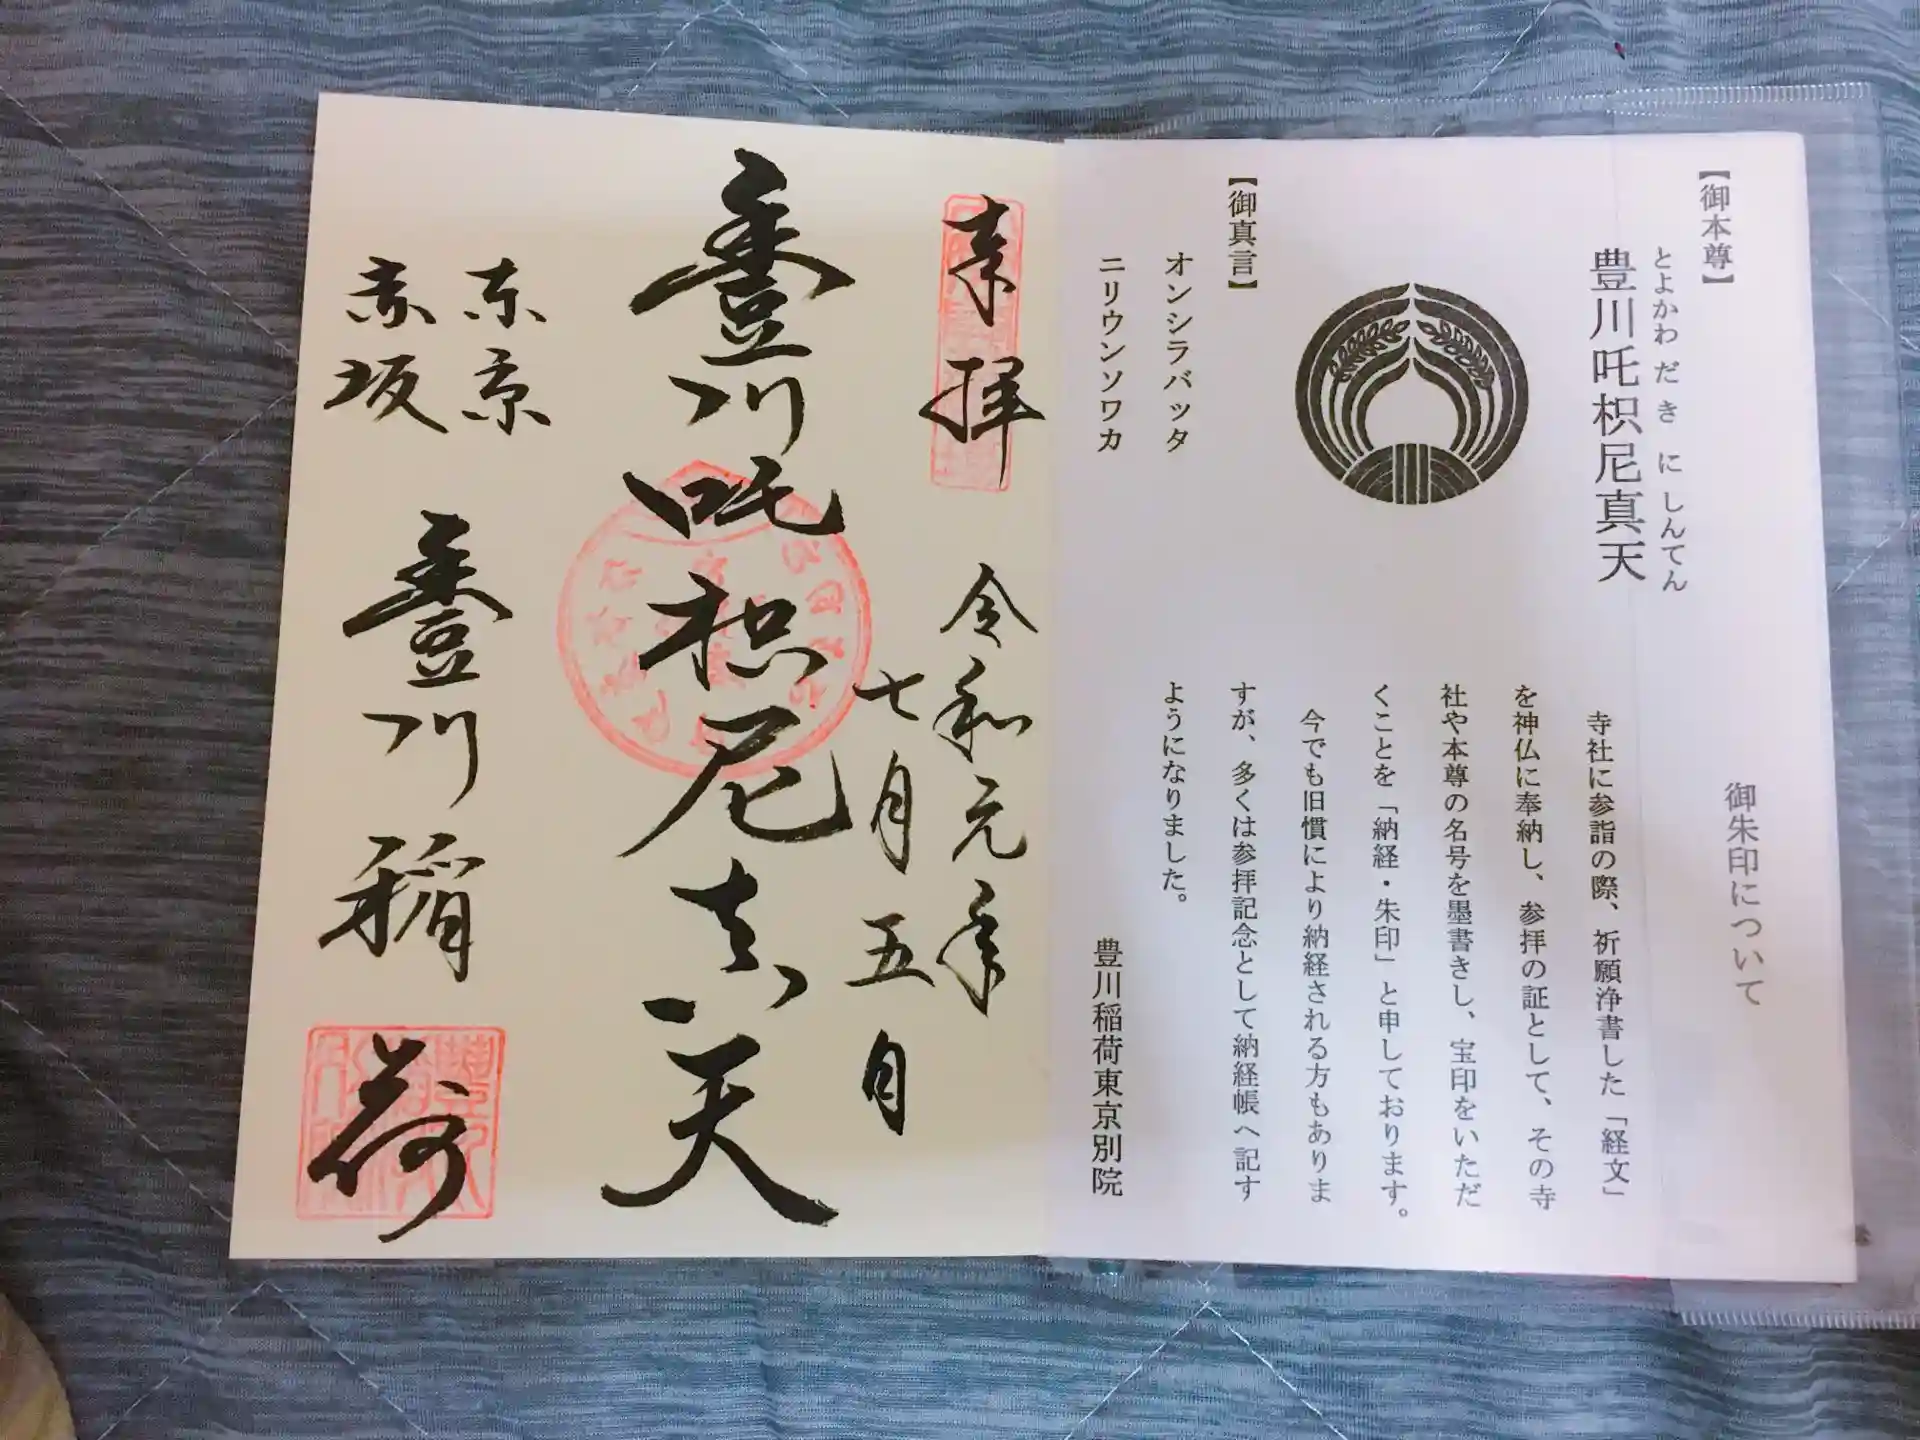 御朱印について
【御本尊】
とよかわ だ き に しんてん
豊川吒枳尼真天
【御真言】
オンシラバッタ
ニリウンソワカ
寺社に参詣の際、祈願浄書した「経文」
を神仏に奉納し、参拝の証として、その寺
社や本尊の名号を墨書きし、宝印をいただ
くことを「納経・朱印」と申しております。
今でも旧慣により納経される方もありま
すが、多くは参拝記念として納経帳へ記す
ようになりました。
豊川稲荷東京別院
奉拝
令和元年
七月五日
豊川吒枳尼真天
東京
赤坂
豊川稲荷